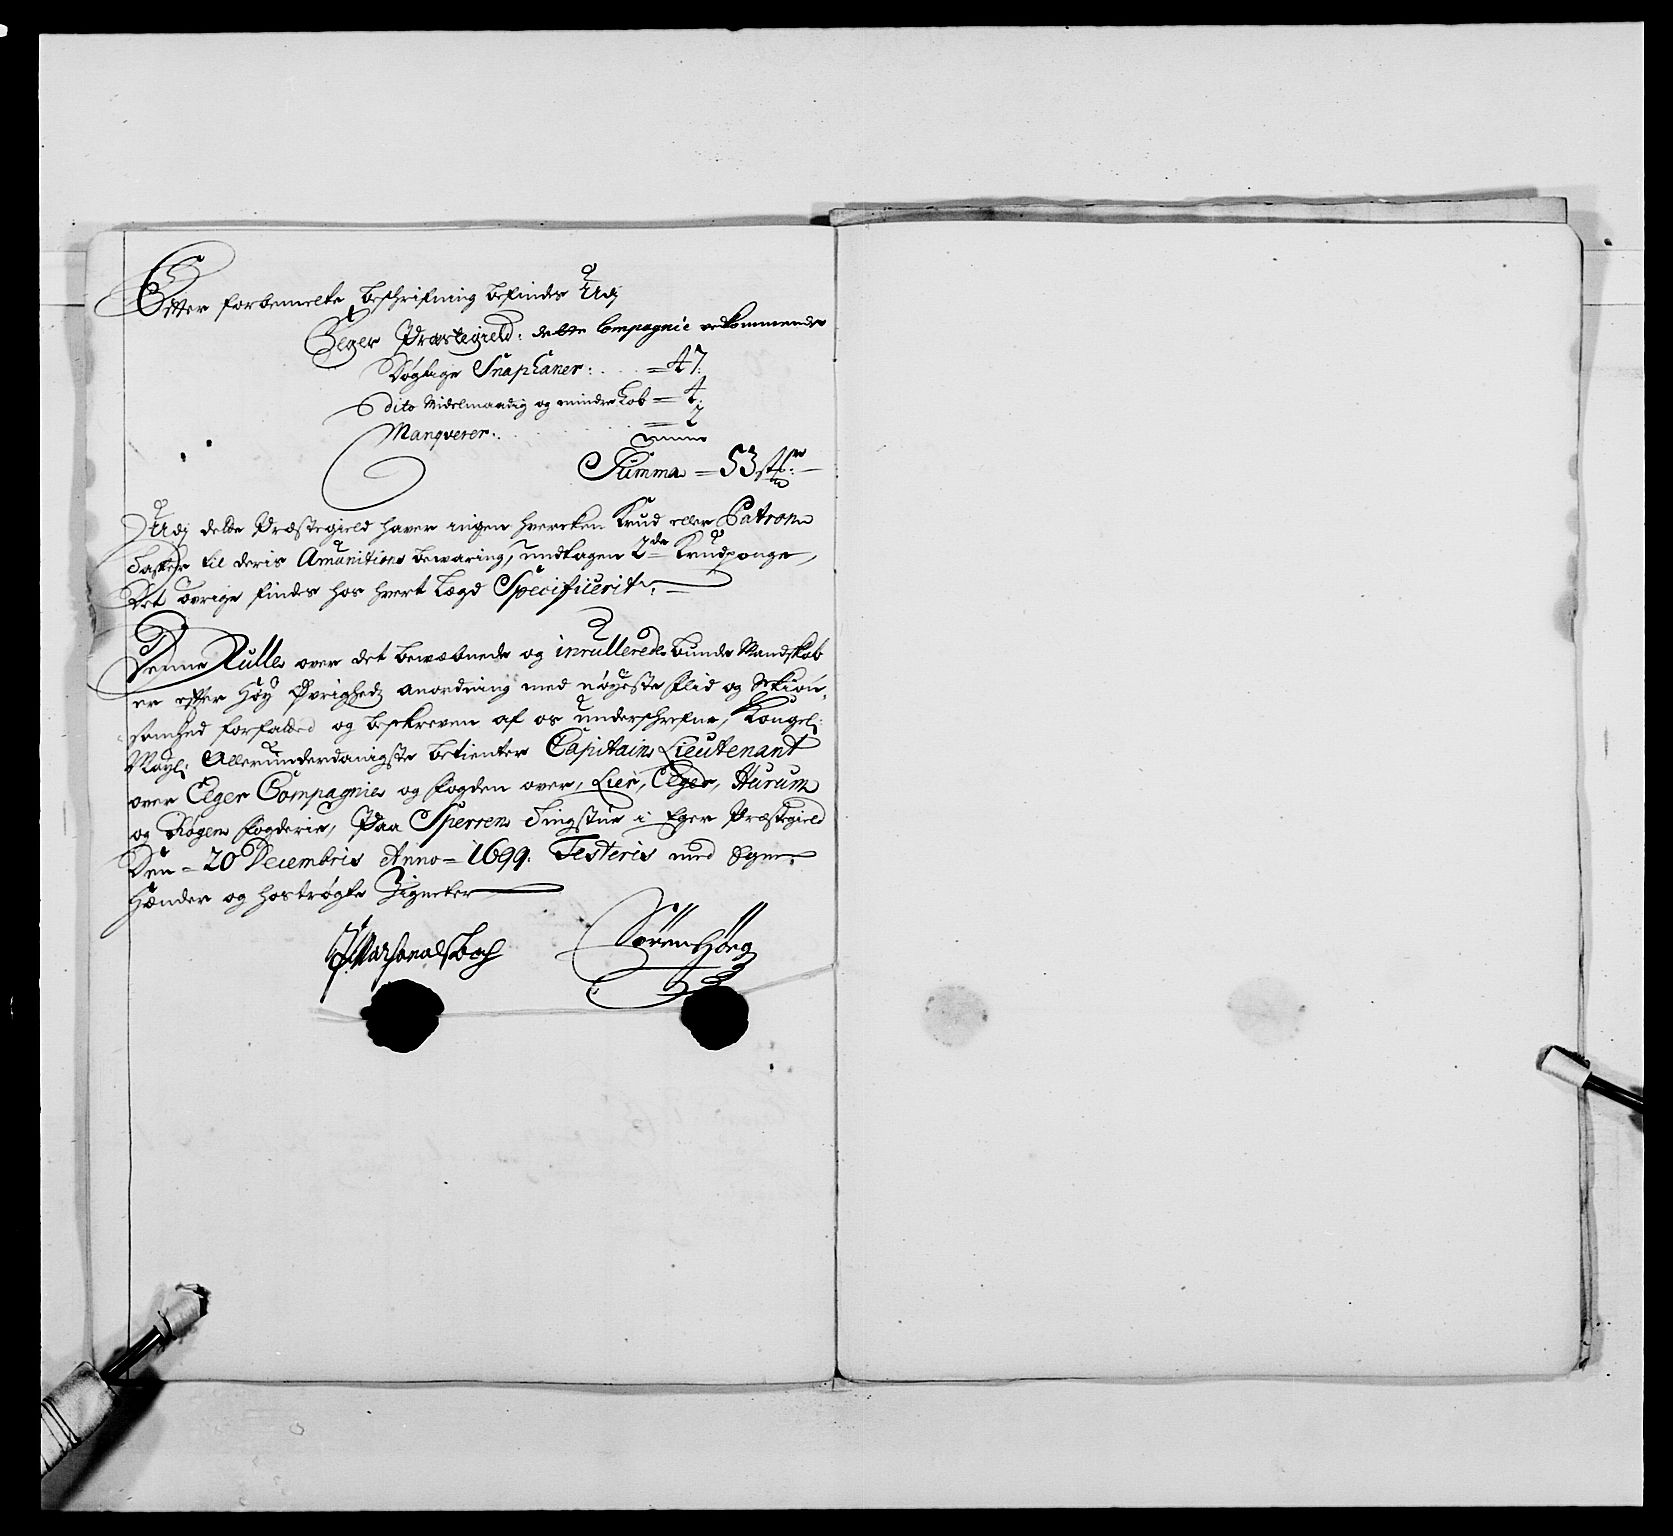 Efter forbemelte beschrifning befindes Udj
Eger Præstegield: dette Compagnie vedkommende
Døgtige Snaphaner: . . . = 47.
dito Midelmaadig og mindre Løb = 4.
Manqverer. . . . = 2
Summa = 53 st:
Udj dette Præstegield haver ingen hvercken Krud eller Patron
Tasker til deris Amunitions bewaring, undtagen 2de Krudponge,
Det øvrige findes hos hvert Lægd Specificerit.
Denne Rulle over det bewæbnede og inrullerede bunde Mandskab
er efter Høy Øvrigheds anordning med nøyeste flid og Skiøn-
somhed forfatted og beskreven af os underschrefne, Kongel:
Mayt: Allerunderdanigste betienter Capitain Lieutenant
over Eger Compagnie og fogden over, Lier, Eger, Hurum
og Røgen fogderie, Paa Sperren Tingstue i Eger Præstegield
Den = 20 Decembris Anno = 1699. Testeris med Egne
Hænder og hostrøgte Zigneter
Søren Hiørg